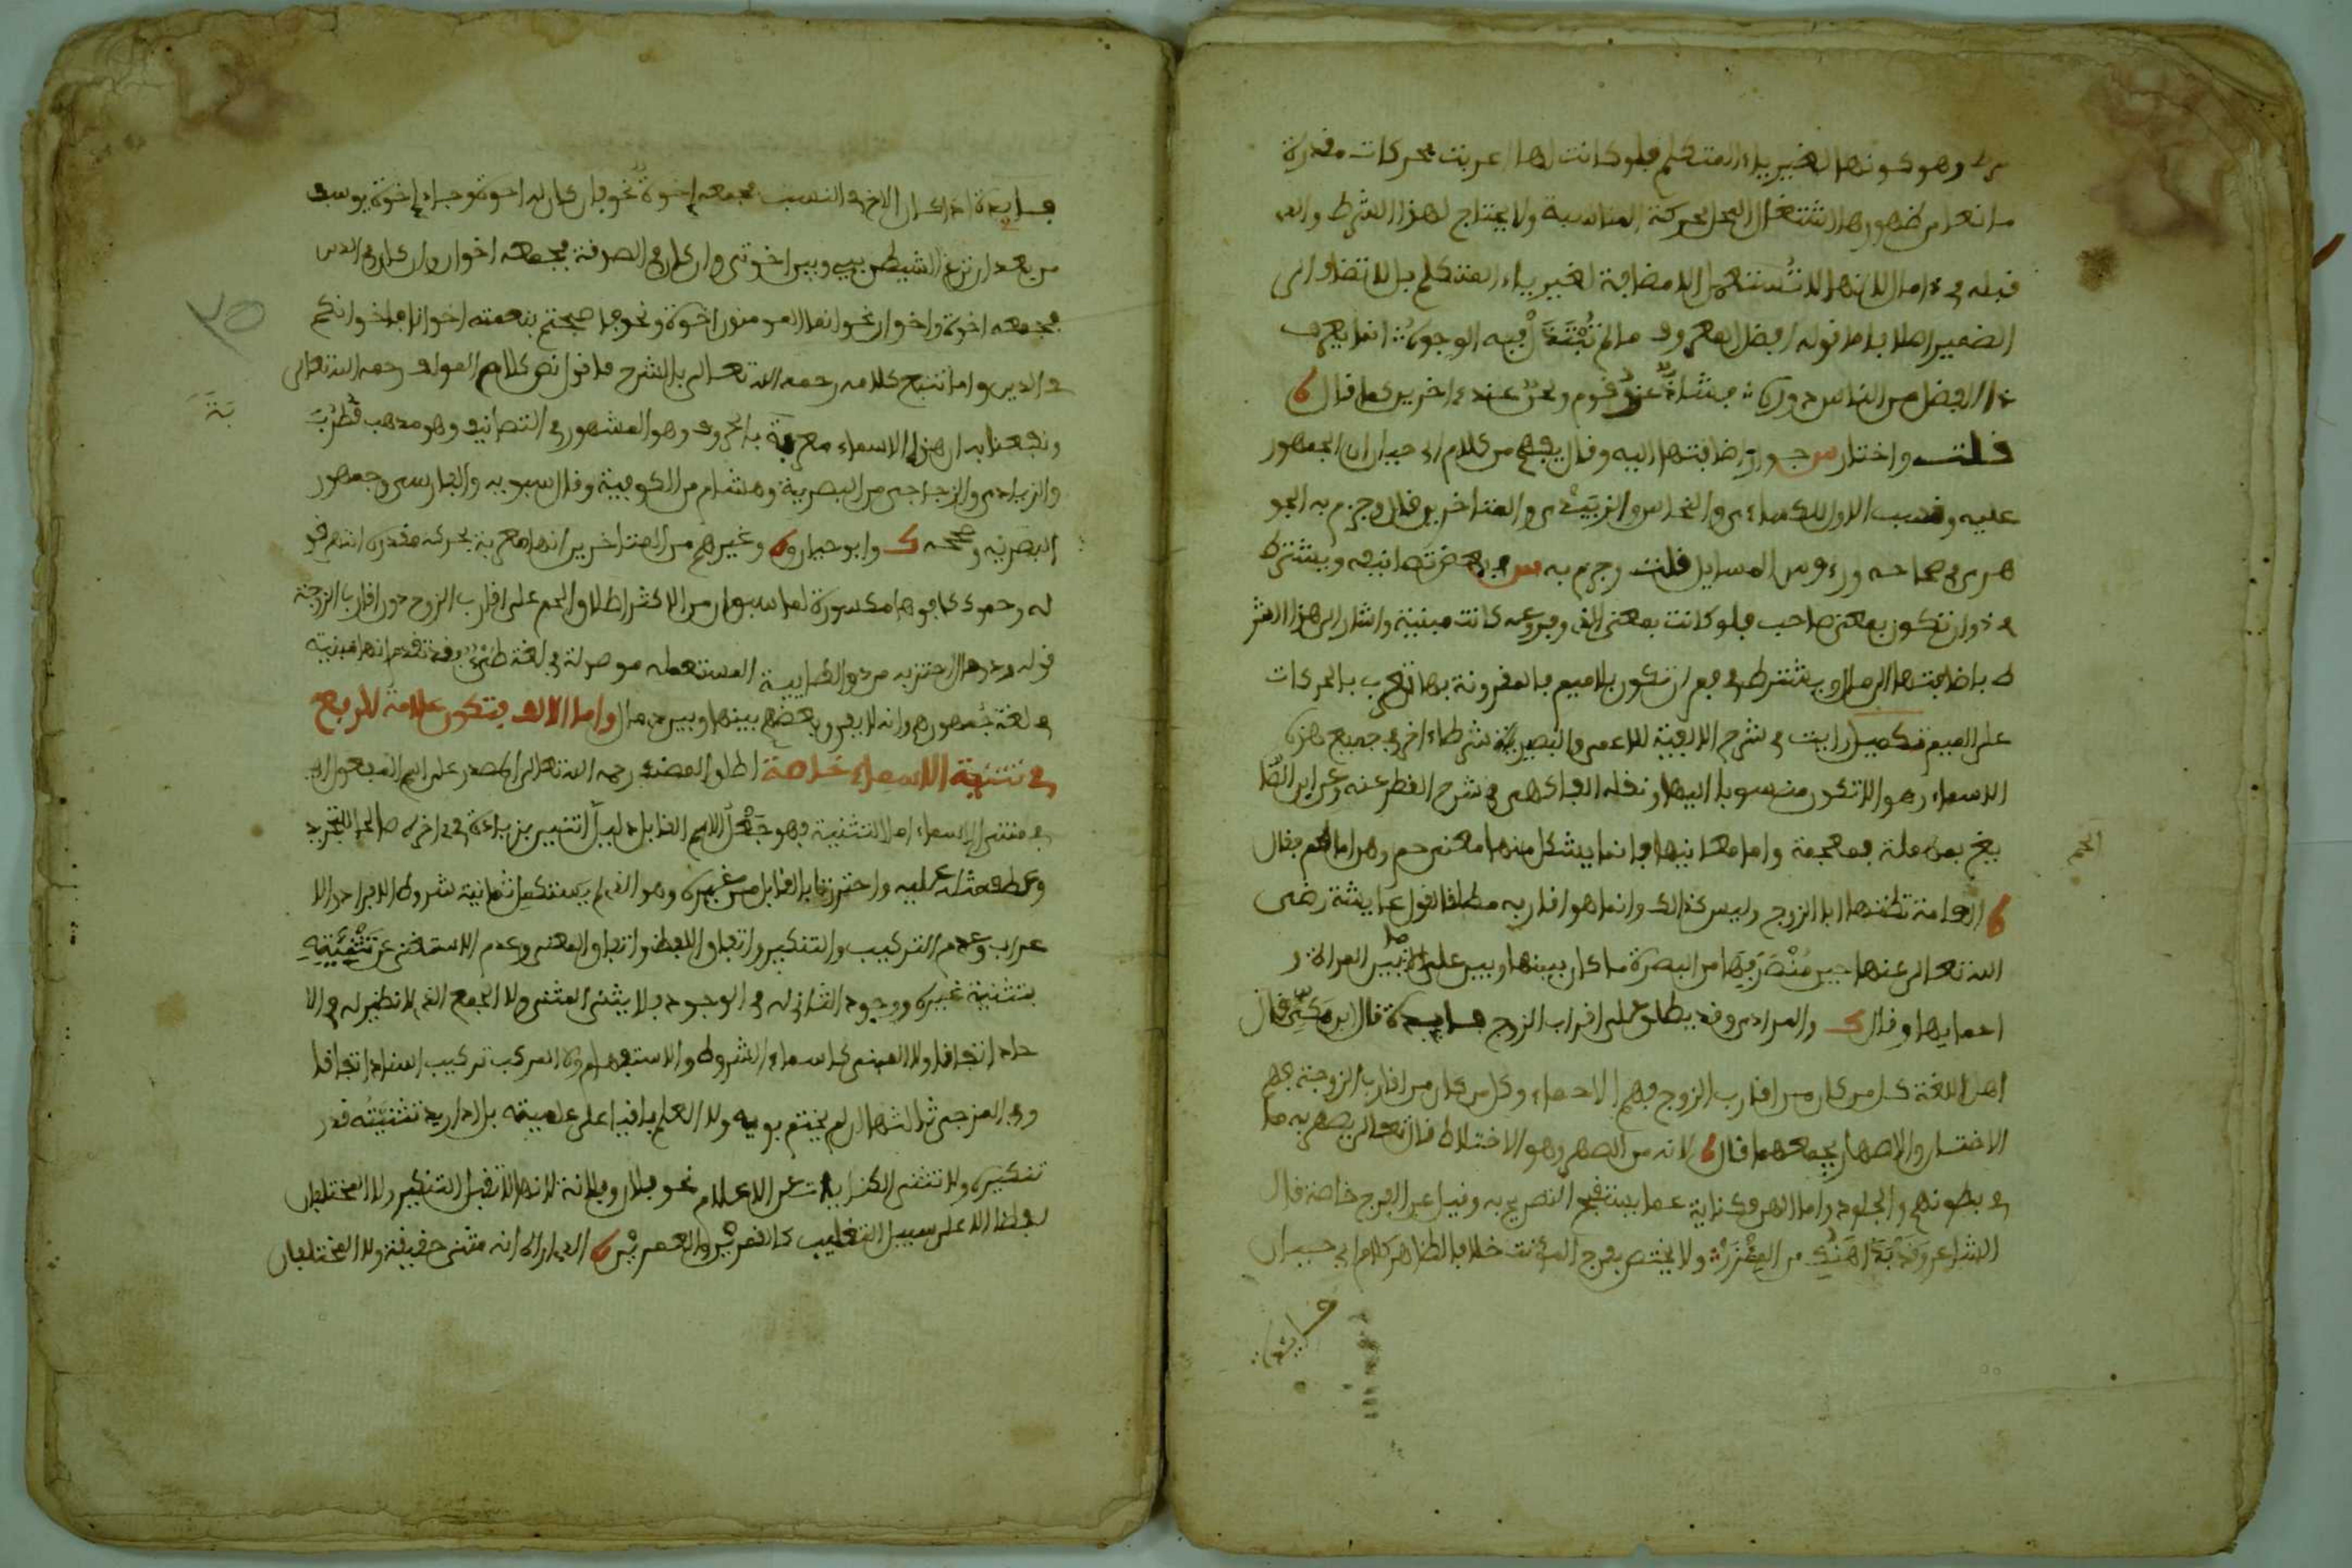 وهو كونها لغير ياء المتكلم فلو كانت لها اعربت بحركات مقدرة
مانعا من ظهورها اشتغال المحل بحركة المناسبة ولا يحتاج لهذا الشرط
قبله في ذو اما لانها لا تستعمل الا مضافة لغير ياء المتكلم بل لا تضاف الى
الضمير اصلا واما قوله افضل المعروف ما لم تبتذل فيه الوجوه انما يعرف
ذا الفضل من الناس ذووه فشاذ عند قوم ونحو عند اخرين كما قال
قلت واختار جواز اضافتها اليه وقال يفهم من كلام ابي حيان ان الجمهور
عليه ونسب الاول للكساءي والنحاس والزبيدي والمتاخرين قال وجزم به الجو
هري في صحاحه ورءوس المسايل قلت وجزم به في بعض تصانيفه ويشترط
في ذو ان تكون بمعنى صاحب فلو كانت بمعنى الذي وفروعه كانت مبنية واشار الى هذا الشر
ط باضافتها الى مال ويشترط في فم ان تكون بلا ميم فالمقرونة بها تعرب بالحركات
على الميم تكميل رايت في شرح الالفية للاعمى والبصير شرطا ءاخر في جميع هذه
الاسماء وهو الا تكون منسوبا اليها ونقله الفاكهي في شرح القطر عنه وعن ابن الصا
يغ بعين مهملة فمعجمة واما معانيها فانما يشكل منها معنى حم وهن اما الحم فقال
الحم
العامة تظنها ابا الزوج وليس كذالك وانما هو اقاربه مطلقا لقول عايشة رضي
الله تعالى عنها حين منصرفها من البصرة ما كان بينها وبين علي الا ما بين المراة و
احمايها وقال والمرادي وقد يطلق على اقراب الزوج فايدة قال ابن مكي قال
اهل اللغة كل من كان من اقارب الزوج فهم الاحماء وكل من كان من اقارب الزوجة فهم
الاختان والاصهار يجمعهما قال لانه من الصهر وهو الاختلاط قال تعالى يصهر به ما
في بطونهم والجلود واما الهن فكناية عما يستقبح التصريح به وقيل عن الفرج خاصة قال
الشاعر وقد بدا هنك من الميزر ولا يختص بفرج المونث خلافا لظاهر كلام ابي حيان
فايدة اذا كان الاخ في النسب فجمعه اخوة نحو فان كان له اخوة وجاء اخوة يوسف
من بعد ان نزغ الشيطن بيني وبين اخوتي وان كان في الصداقة فجمعه اخوان وان كان في الدين
فجمعه اخوة واخوان نحو انما المومنون اخوة ونحو فاصبحتم بنعمته اخوانا فاخوانكم
في الدين واما تتبع كلامه رحمه الله تعالى بالشرح فاقول نص كلام المولف رحمه الله تعالى
ونفعنا به ان هذه الاسماء معربة بالحروف وهو المشهور في التصانيف وهو مذهب قطرب
والزيادي والزجاجي من البصرية وهشام من الكوفية وقال سيبويه والفارسي وجمهور
البصرية وصححه وابو حيان وغيرهم من المتاخرين انها معربة بحركة مقدرة انتهى قو
له وحموك كافوها مكسورة لما سبق ان من الاكثر اطلاق الحم على اقارب الزوج دون اقارب الزوجة
قوله وذو مال احترز به من ذو الطاييية المستعملة موصولة في لغة طيء وقد تقدم انها مبنية
في لغة جمهورهم وانه لا يفرق بعضهم بينها وبين ذي مال واما الالف فتكون علامة للرفع
في تثنية الاسماء خاصة اطلق المصنف رحمه الله تعالى المصدر على اسم المفعول اي
في مثنى الاسماء اما التثنية فهو جعل الاسم القابل دليل اثنين بزيادة في اخره صالحا للتجريد
وعطف مثله عليه واحترزنا بالقابل من غيره وهو الذي لم يستكمل ثمانية شروط الافراد والا
عراب وعدم التركيب والتنكير واتفاق اللفظ واتفاق المعنى وعدم الاستغنى عن تثنيته
بتثنية غيره ووجود الثاني له في الوجود فلا يثنى المثنى ولا الجمع الذي لا نظير له في الا
حاد اتفاقا ولا المبني كاسماء الشروط والاستفهام ولا المركب تركيب اسناد اتفاقا
وفي المزجي ثالثها ان لم يختم بويه ولا العلم باقيا على علميته بل اذا اريد تثنيته قدر
تنكيره ولا تثنى الكنايات عن الاعلام نحو فلان وفلانة لانها لا تقبل التنكير ولا المختلفان
لفظا الا على سبيل التغليب كالقمرين والعمرين انه مثنى حقيقة ولا المختلفان